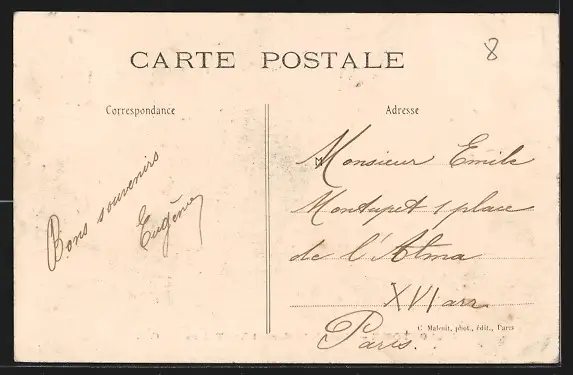 CARTE POSTALE
8
Correspondance
Adresse
Bons souvenirs
Eugène
Monsieur Emile
Montupet 1 place
de l'Alma
XVI arr
Paris.
C. Malcuit, phot., édit., Paris